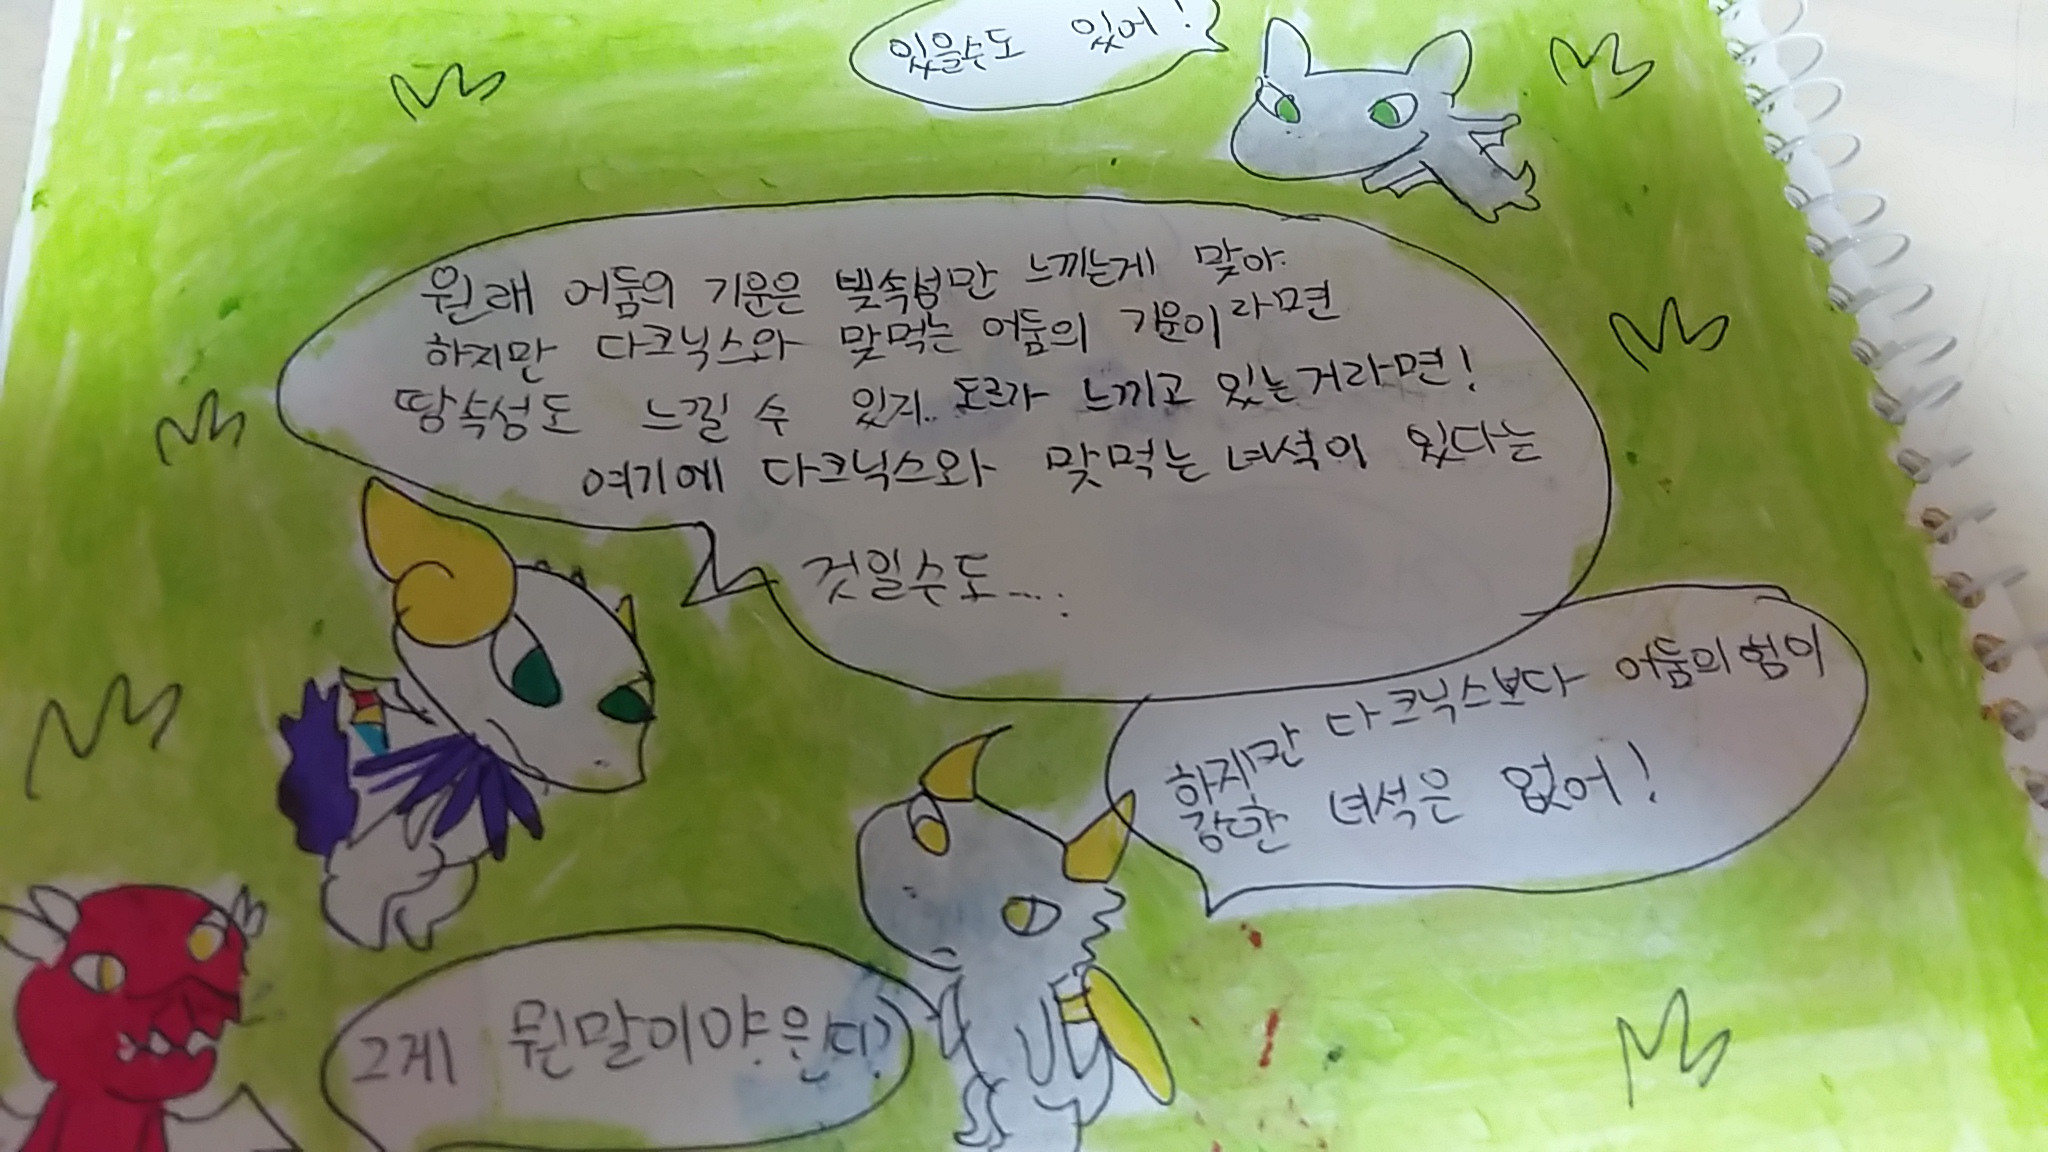 있을수도 있어!
원래 어둠의 기운은 빛속성만 느끼는게 맞아.
하지만 다크닉스와 맞먹는 어둠의 기운이라면
땅속성도 느낄 수 있지.. 도르가 느끼고 있는거라면!
여기에 다크닉스와 맞먹는 녀석이 있다는
것일수도....
하지만 다크닉스보다 어둠의 힘이
강한 녀석은 없어!
그게 뭔말이야 은디?